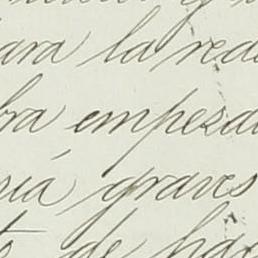 ara la red
bra empeza
iá graves
de ha